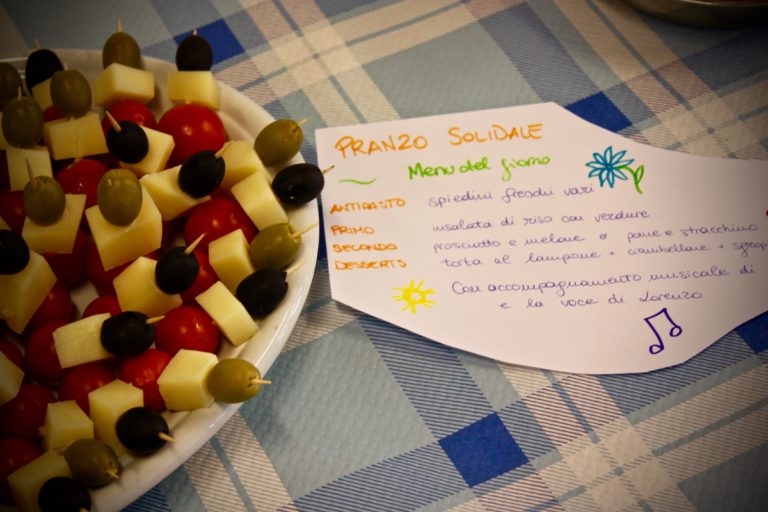 PRANZO SOLIDALE
Menu del giorno
ANTIPASTO spiedini freschi vari
PRIMO insalata di riso con verdure
SECONDO prosciutto e melone e pane e stracchino
DESSERTS torta al lampone + ciambellone +
Con accompagnamento musicale di
e la voce di Lorenzo